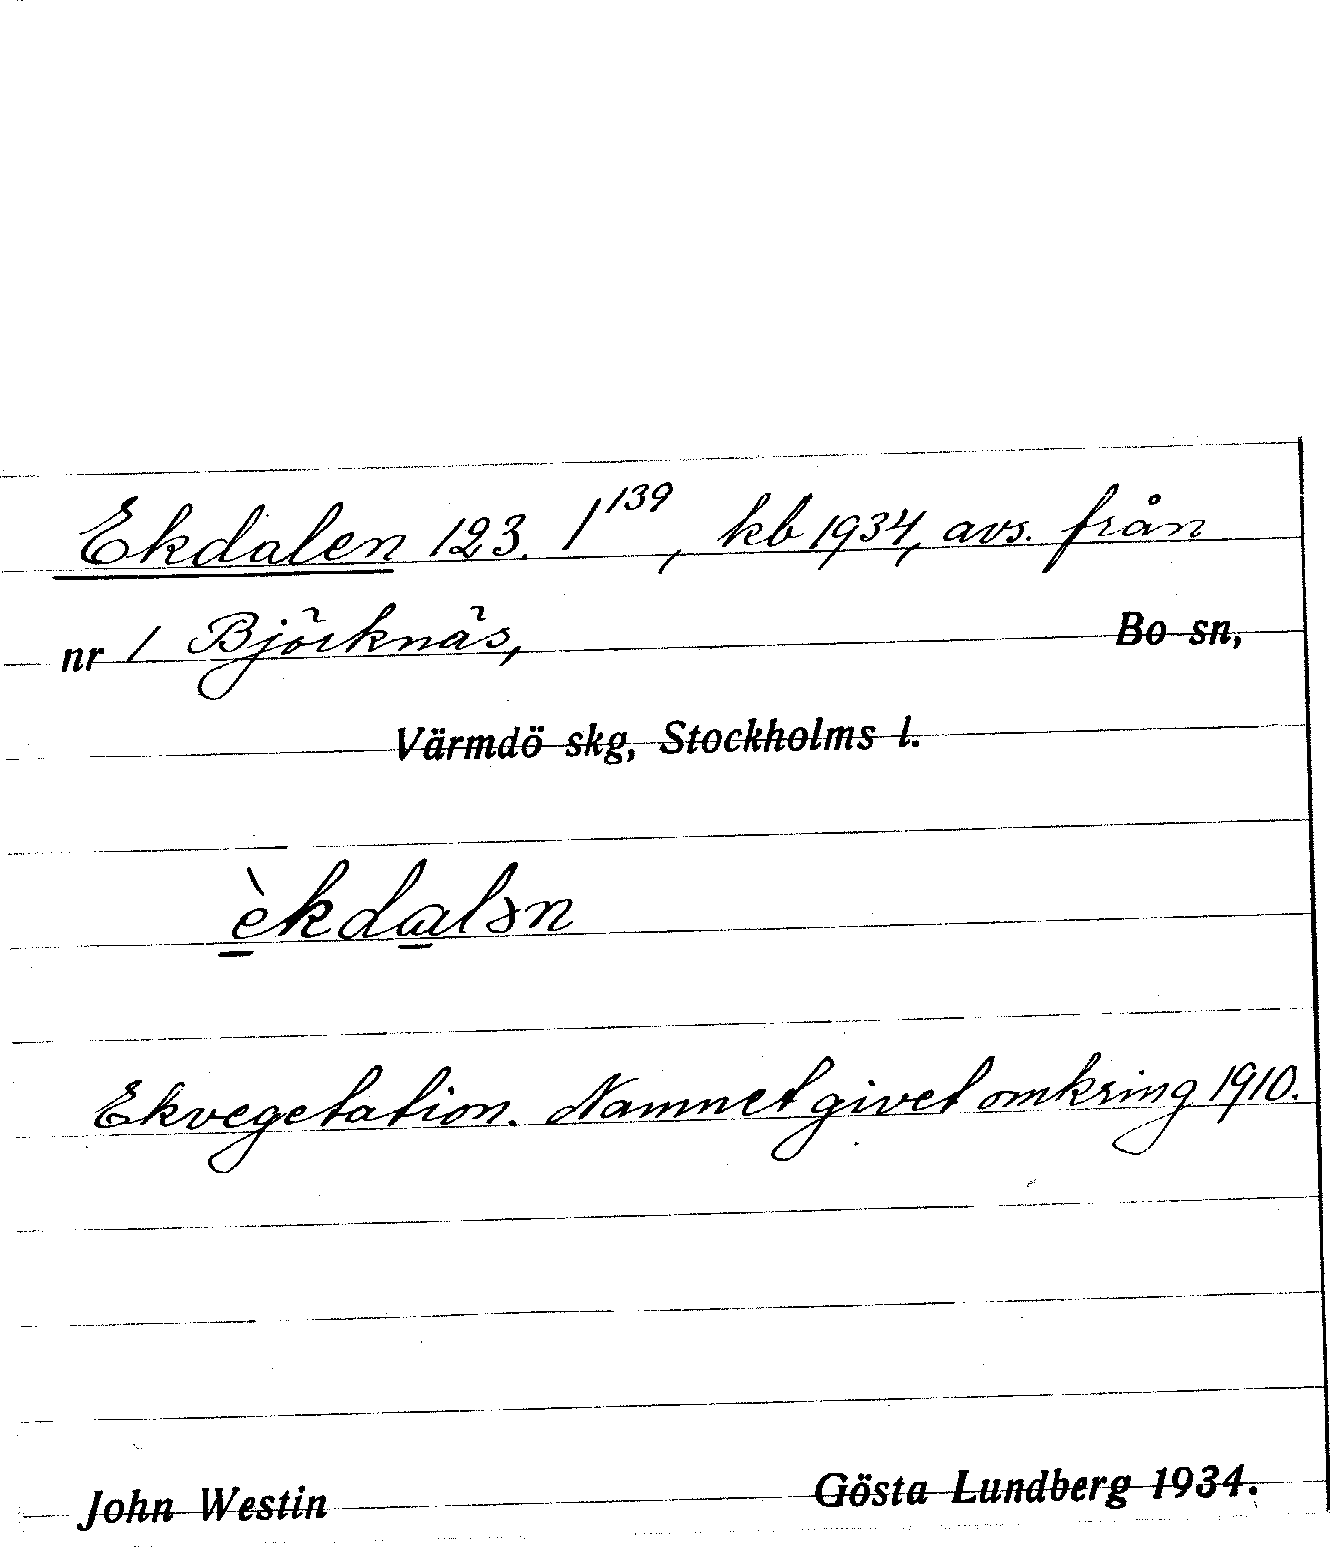 Ekdalen 123. 1¹³⁹, kb 1934, avs. från
nr 1 Björknäs, Bo sn,
Värmdö skg, Stockholms l.
èkdalən
Ekvegetation. Namnet givet omkring 1910.
John Westin Gösta Lundberg 1934.